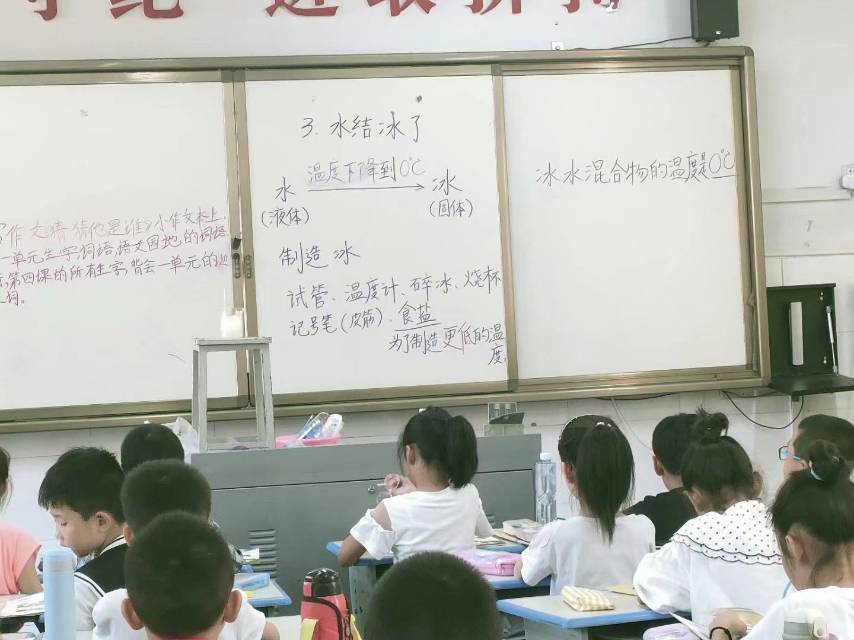 3. 水结冰了
水 温度下降到0℃ 冰
(液体) (固体)
制造冰
试管、温度计、碎冰、烧杯
记号笔(皮筋)、食盐
为了制造更低的温
度。
冰水混合物的温度是0℃
作文猜猜他是谁》小作文本上
一单元生字,词语,语文园地的词语
第四课的所有生字,背会一单元的